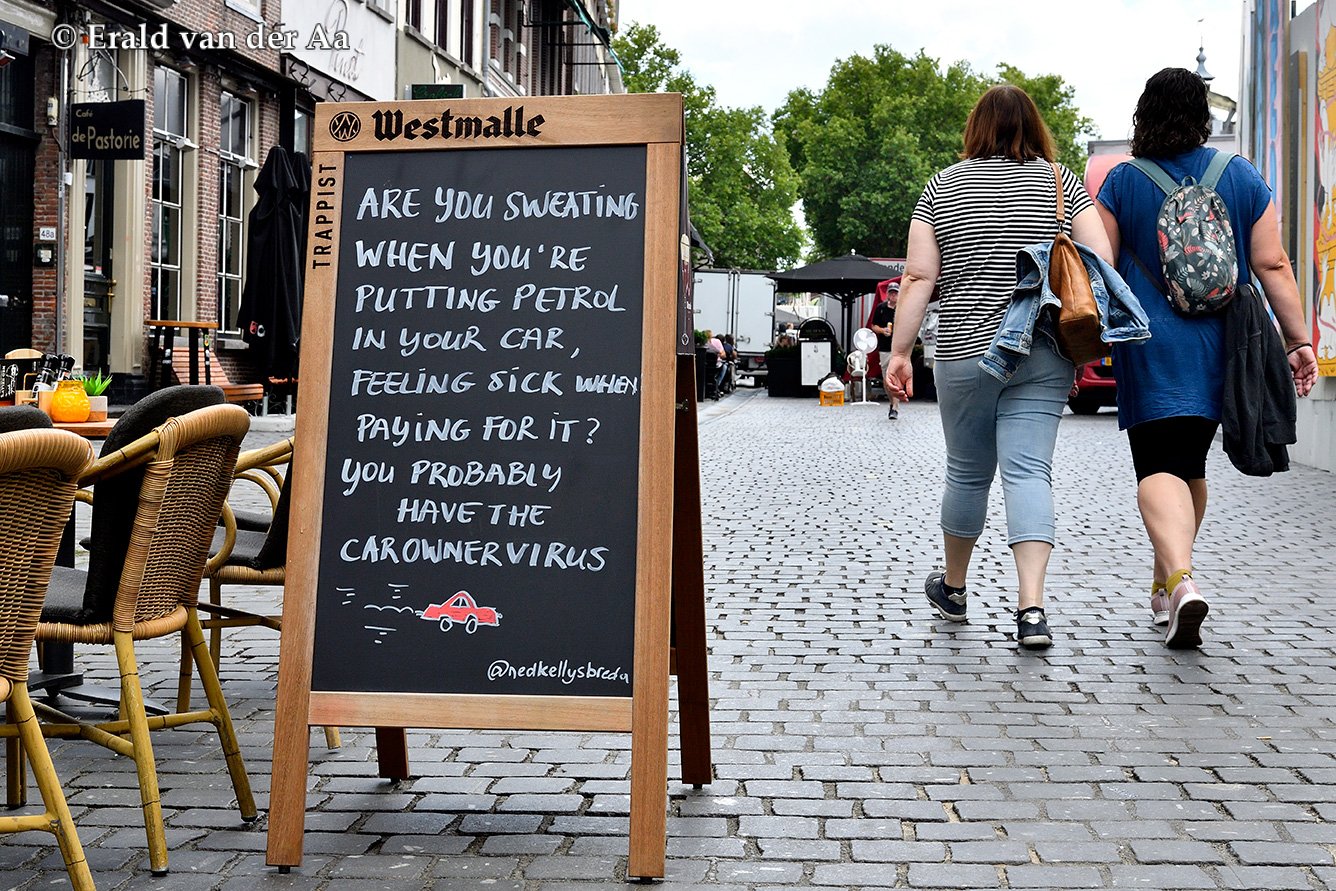 © Erald van der Aa
Café
de Pastorie
48a
Westmalle
TRAPPIST
ARE YOU SWEATING
WHEN YOU'RE
PUTTING PETROL
IN YOUR CAR,
FEELING SICK WHEN
PAYING FOR IT?
YOU PROBABLY
HAVE THE
CAROWNERVIRUS
@nedkellysbreda